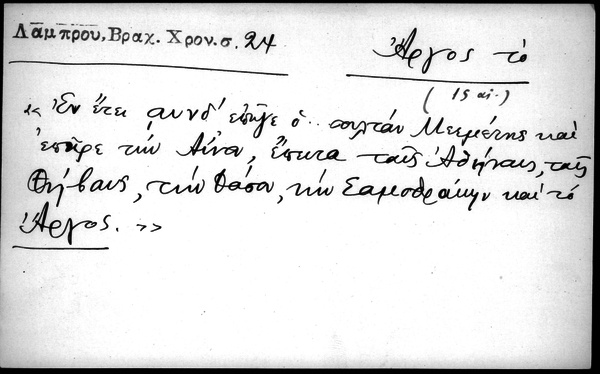 Λάμπρου, Βραχ. Χρον. σ. 24
Ἄργος τό
(15 αἰ.)
«Ἐν ἔτει αυνδ' ἐπῆγε ὁ σουλτὰν Μεεμέτης καὶ
ἐπῆρε τὴν Αἶνο, ἔπειτα ταῖς Ἀθήναις, ταῖς
Θήβαις, τὴν Θάσο, τὴν Σαμοθράκην καὶ τὸ
Ἄργος.»